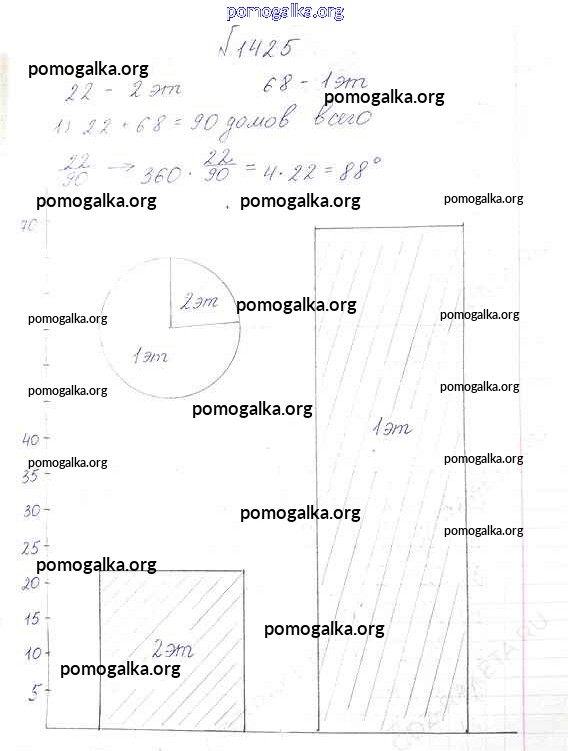 pomogalka.org
№1425
pomogalka.org
22 - 2 эт 68 - 1 эт
pomogalka.org
1) 22 + 68 = 90 домов всего
22/90 → 360 · 22/90 = 4 · 22 = 88°
pomogalka.org pomogalka.org pomogalka.org
70
2эт
pomogalka.org
pomogalka.org pomogalka.org
1эт
pomogalka.org pomogalka.org
pomogalka.org
1эт
40
pomogalka.org pomogalka.org
35
30
pomogalka.org
pomogalka.org
25
pomogalka.org
20
15
pomogalka.org
10
2эт
pomogalka.org
5